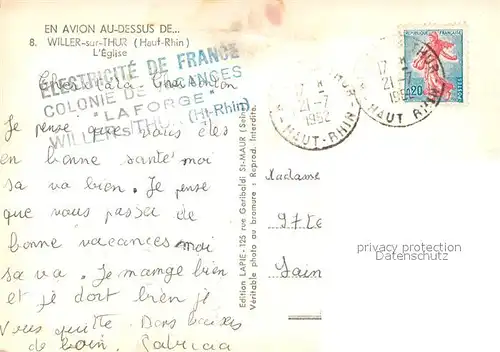 EN AVION AU-DESSUS DE...
8. WILLER-sur-THUR (Haut-Rhin)
L'Église
ÉLECTRICITÉ DE FRANCE
COLONIE DE VACANCES
"LAFORGE"
WILLER S/ THUR (Ht-Rhin)
Je pense que vous
en bonne santé moi
sa va bien. Je pense
que vous passer de
bonne vacances moi
sa va. Je mamge bien
et je dort bien je
vous quitte. Dans baises
de loin.
Edition LAPIE-125 rue Garibaldi St-MAUR (Seine)
Véritable photo au bromure : Reprod. Interdite.
17 H
21-7
1962
HAUT-RHIN
THUR
17 H
21-7
1962
HAUT RHIN
RÉPUBLIQUE FRANÇAISE
0,20
POSTES
Madame
97te
Sain
privacy protection
Datenschutz